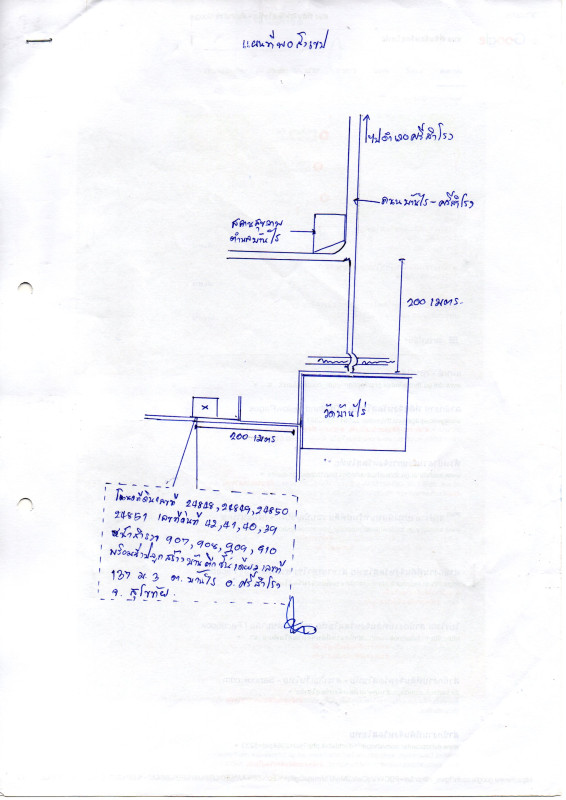 แผนที่พอสังเขป
ไปอำเภอศรีสำโรง
ถนนบ้านไร่-ศรีสำโรง
สถานสุขภาพ
ตำบลบ้านไร่
200 เมตร
วัดบ้านไร่
x
200 เมตร
โฉนดที่ดินเลขที่ 24848, 24849, 24850
24851 เลขที่ดินที่ 42, 41, 40, 39
หน้าสำรวจ 907, 908, 909, 910
พร้อมสิ่งปลูกสร้างบ้านตึกชั้นเดียว เลขที่
137 ม. 3 ต. บ้านไร่ อ. ศรีสำโรง
จ. สุโขทัย